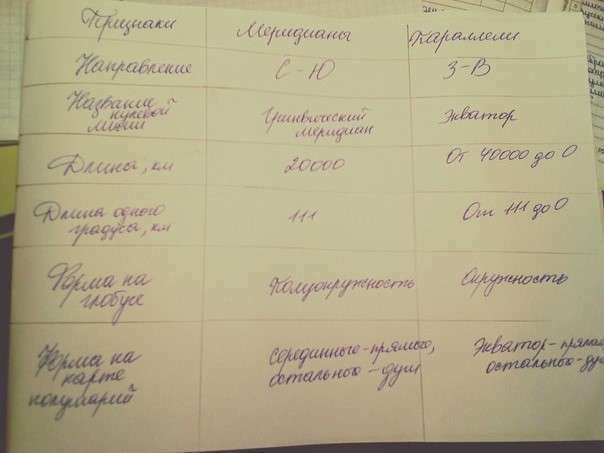 Признаки Меридианы Параллели
Направление С-Ю З-В
Название
нулевой
линии
Гринвический
меридиан
Экватор
Длина, км 20000 От 40000 до 0
Длина одного
градуса, км
111
От 111 до 0
Форма на
глобусе
Полуокружность
Окружность
Форма на
карте
полушарий
Серединного-прямого,
остального - дуги
Экватор-прямая
остального-дуги